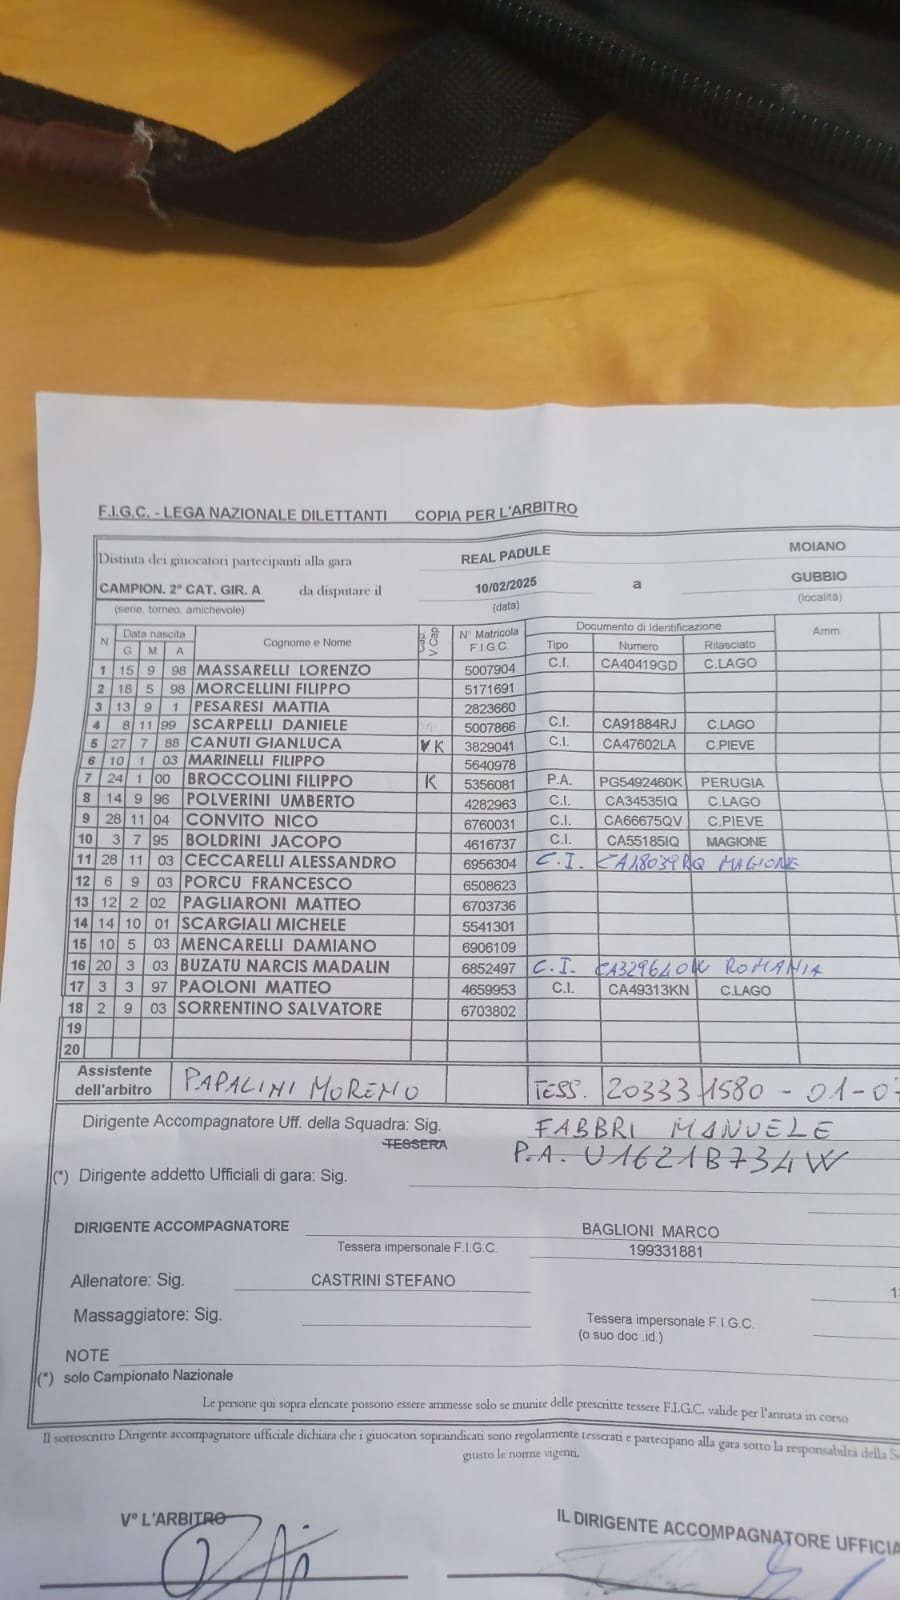 F.I.G.C. - LEGA NAZIONALE DILETTANTI COPIA PER L'ARBITRO
Distinta dei giuocatori partecipanti alla gara REAL PADULE MOIANO
CAMPION. 2° CAT. GIR. A da disputare il 10/02/2025 a GUBBIO
(serie, torneo, amichevole) (data) (località)
N Data nascita Cognome e Nome Cap. V Cap N° Matricola F.I.G.C. Documento di Identificazione Amm.
G M A Tipo Numero Rilasciato
1 15 9 98 MASSARELLI LORENZO 5007904 C.I. CA40419GD C.LAGO
2 18 5 98 MORCELLINI FILIPPO 5171691
3 13 9 1 PESARESI MATTIA 2823660
4 8 11 99 SCARPELLI DANIELE 5007866 C.I. CA91884RJ C.LAGO
5 27 7 88 CANUTI GIANLUCA VK 3829041 C.I. CA47602LA C.PIEVE
6 10 1 03 MARINELLI FILIPPO 5640978
7 24 1 00 BROCCOLINI FILIPPO K 5356081 P.A. PG5492460K PERUGIA
8 14 9 96 POLVERINI UMBERTO 4282963 C.I. CA34535IQ C.LAGO
9 28 11 04 CONVITO NICO 6760031 C.I. CA66675QV C.PIEVE
10 3 7 95 BOLDRINI JACOPO 4616737 C.I. CA55185IQ MAGIONE
11 28 11 03 CECCARELLI ALESSANDRO 6956304 C.I. CA18039RQ MAGIONE
12 6 9 03 PORCU FRANCESCO 6508623
13 12 2 02 PAGLIARONI MATTEO 6703736
14 14 10 01 SCARGIALI MICHELE 5541301
15 10 5 03 MENCARELLI DAMIANO 6906109
16 20 3 03 BUZATU NARCIS MADALIN 6852497 C.I. ROMANIA
17 3 3 97 PAOLONI MATTEO 4659953 C.I. CA49313KN C.LAGO
18 2 9 03 SORRENTINO SALVATORE 6703802
19
20
Assistente dell'arbitro PAPALINI MORENO TESS. 203331580 - 01-07
Dirigente Accompagnatore Uff. della Squadra: Sig. FABBRI MANUELE
TESSERA P.A. U1621B734W
(*) Dirigente addetto Ufficiali di gara: Sig.
DIRIGENTE ACCOMPAGNATORE BAGLIONI MARCO
Tessera impersonale F.I.G.C. 199331881
Allenatore: Sig. CASTRINI STEFANO
Massaggiatore: Sig. Tessera impersonale F.I.G.C.
(o suo doc .id.)
NOTE
(*) solo Campionato Nazionale
Le persone qui sopra elencate possono essere ammesse solo se munite delle prescritte tessere F.I.G.C. valide per l'annata in corso
Il sottoscritto Dirigente accompagnatore ufficiale dichiara che i giuocatori sopraindicati sono regolarmente tesserati e partecipano alla gara sotto la responsabiltà della
giusto le norme vigenti.
V° L'ARBITRO IL DIRIGENTE ACCOMPAGNATORE UFFICIA